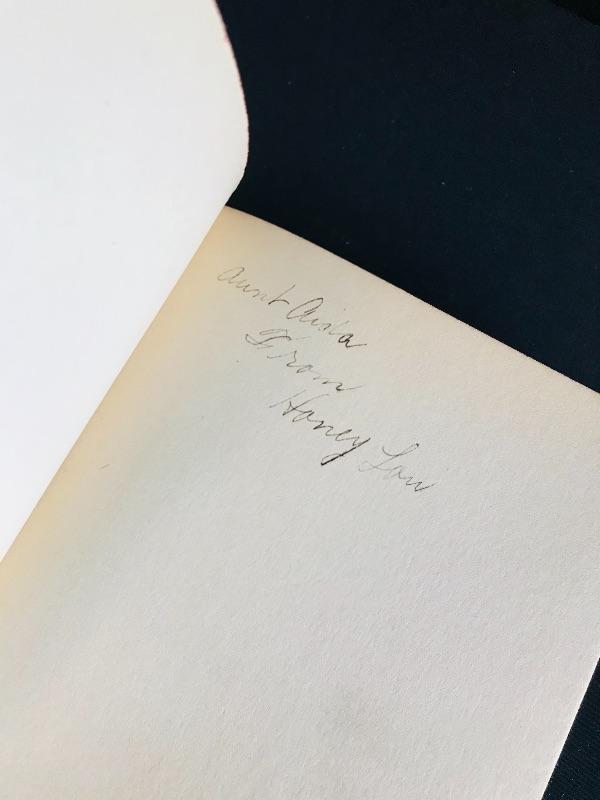 Aunt Aida
From
Honey Lou